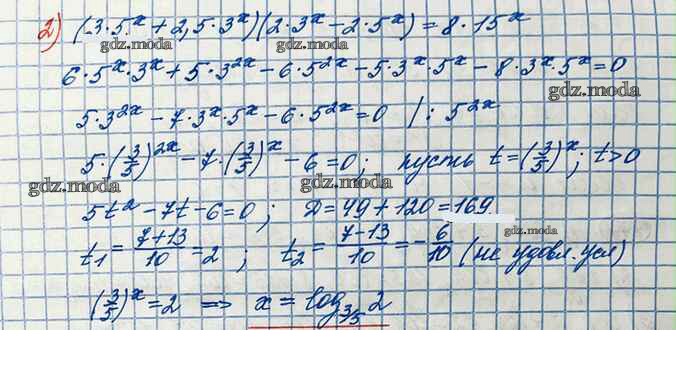 2) (3·5^x + 2,5·3^x)(2·3^x − 2·5^x) = 8·15^x
gdz.moda gdz.moda
6·5^x·3^x + 5·3^{2x} − 6·5^{2x} − 5·3^x·5^x − 8·3^x·5^x = 0
gdz.moda
5·3^{2x} − 7·3^x·5^x − 6·5^{2x} = 0 | : 5^{2x}
5·(3/5)^{2x} − 7·(3/5)^x − 6 = 0; пусть t = (3/5)^x; t > 0
gdz.moda gdz.moda
5t² − 7t − 6 = 0; D = 49 + 120 = 169
gdz.moda
t₁ = (7+13)/10 = 2; t₂ = (7−13)/10 = −6/10 (не удовл. усл)
(3/5)^x = 2 ⟹ x = log_{3/5} 2